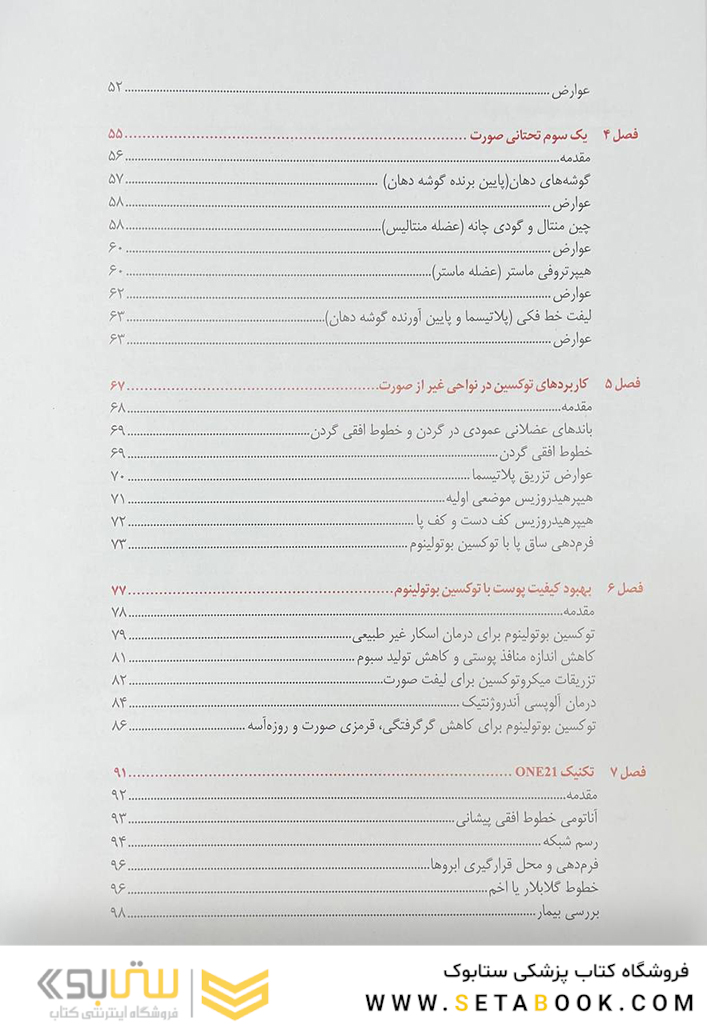 عوارض ۵۲
فصل ۴ یک سوم تحتانی صورت ۵۵
مقدمه ۵۶
گوشه‌های دهان(پایین برنده گوشه دهان) ۵۷
عوارض ۵۸
چین منتال و گودی چانه (عضله منتالیس) ۵۸
عوارض ۶۰
هیپرتروفی ماستر (عضله ماستر) ۶۰
عوارض ۶۲
لیفت خط فکی (پلاتیسما و پایین آورنده گوشه دهان) ۶۳
عوارض ۶۳
فصل ۵ کاربردهای توکسین در نواحی غیر از صورت ۶۷
مقدمه ۶۸
باندهای عضلانی عمودی در گردن و خطوط افقی گردن ۶۹
خطوط افقی گردن ۶۹
عوارض تزریق پلاتیسما ۷۰
هیپرهیدروزیس موضعی اولیه ۷۱
هیپرهیدروزیس کف دست و کف پا ۷۲
فرم‌دهی ساق پا با توکسین بوتولینوم ۷۳
فصل ۶ بهبود کیفیت پوست با توکسین بوتولینوم ۷۷
مقدمه ۷۸
توکسین بوتولینوم برای درمان اسکار غیر طبیعی ۷۹
کاهش اندازه منافذ پوستی و کاهش تولید سبوم ۸۱
تزریقات میکروتوکسین برای لیفت صورت ۸۲
درمان آلوپسی آندروژنتیک ۸۴
توکسین بوتولینوم برای کاهش گرگرفتگی، قرمزی صورت و روزه‌آسه ۸۶
فصل ۷ تکنیک ONE21 ۹۱
مقدمه ۹۲
آناتومی خطوط افقی پیشانی ۹۳
رسم شبکه ۹۴
فرم‌دهی و محل قرارگیری ابروها ۹۶
خطوط گلابلار یا اخم ۹۶
بررسی بیمار ۹۸
فروشگاه کتاب پزشکی ستابوک
WWW.SETABOOK.COM
ستابوک
فروشگاه اینترنتی کتاب